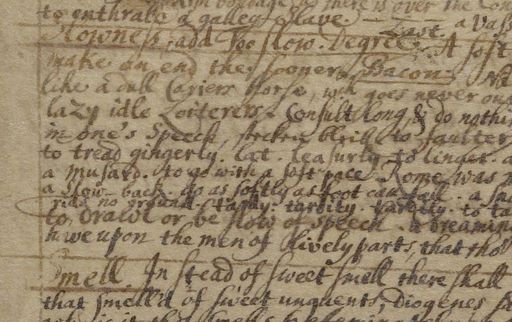 there is over the
to enthrall a galley slave. a
Slowness, add Too slow. Degree. Last. A soft
make an end the sooner. Bacon.
like a dull Cariers horse, wch goes never out
lazy idle Loiterers. Consult long, & do nothi
in one's speech, to faulter
to tread gingerly. lat. leasurly to linger. a
a musard. to go with a soft pace. Rome was n
a slow back. go as softly as foot can fall. a
rids no ground. tardy. tardity. to ta
to drawl or be slow of speech. a dreamin
hive upon the men of lively parts, that tho
Smell, In stead of sweet smell there shall
that smell'd of sweet unguents, Diogenes